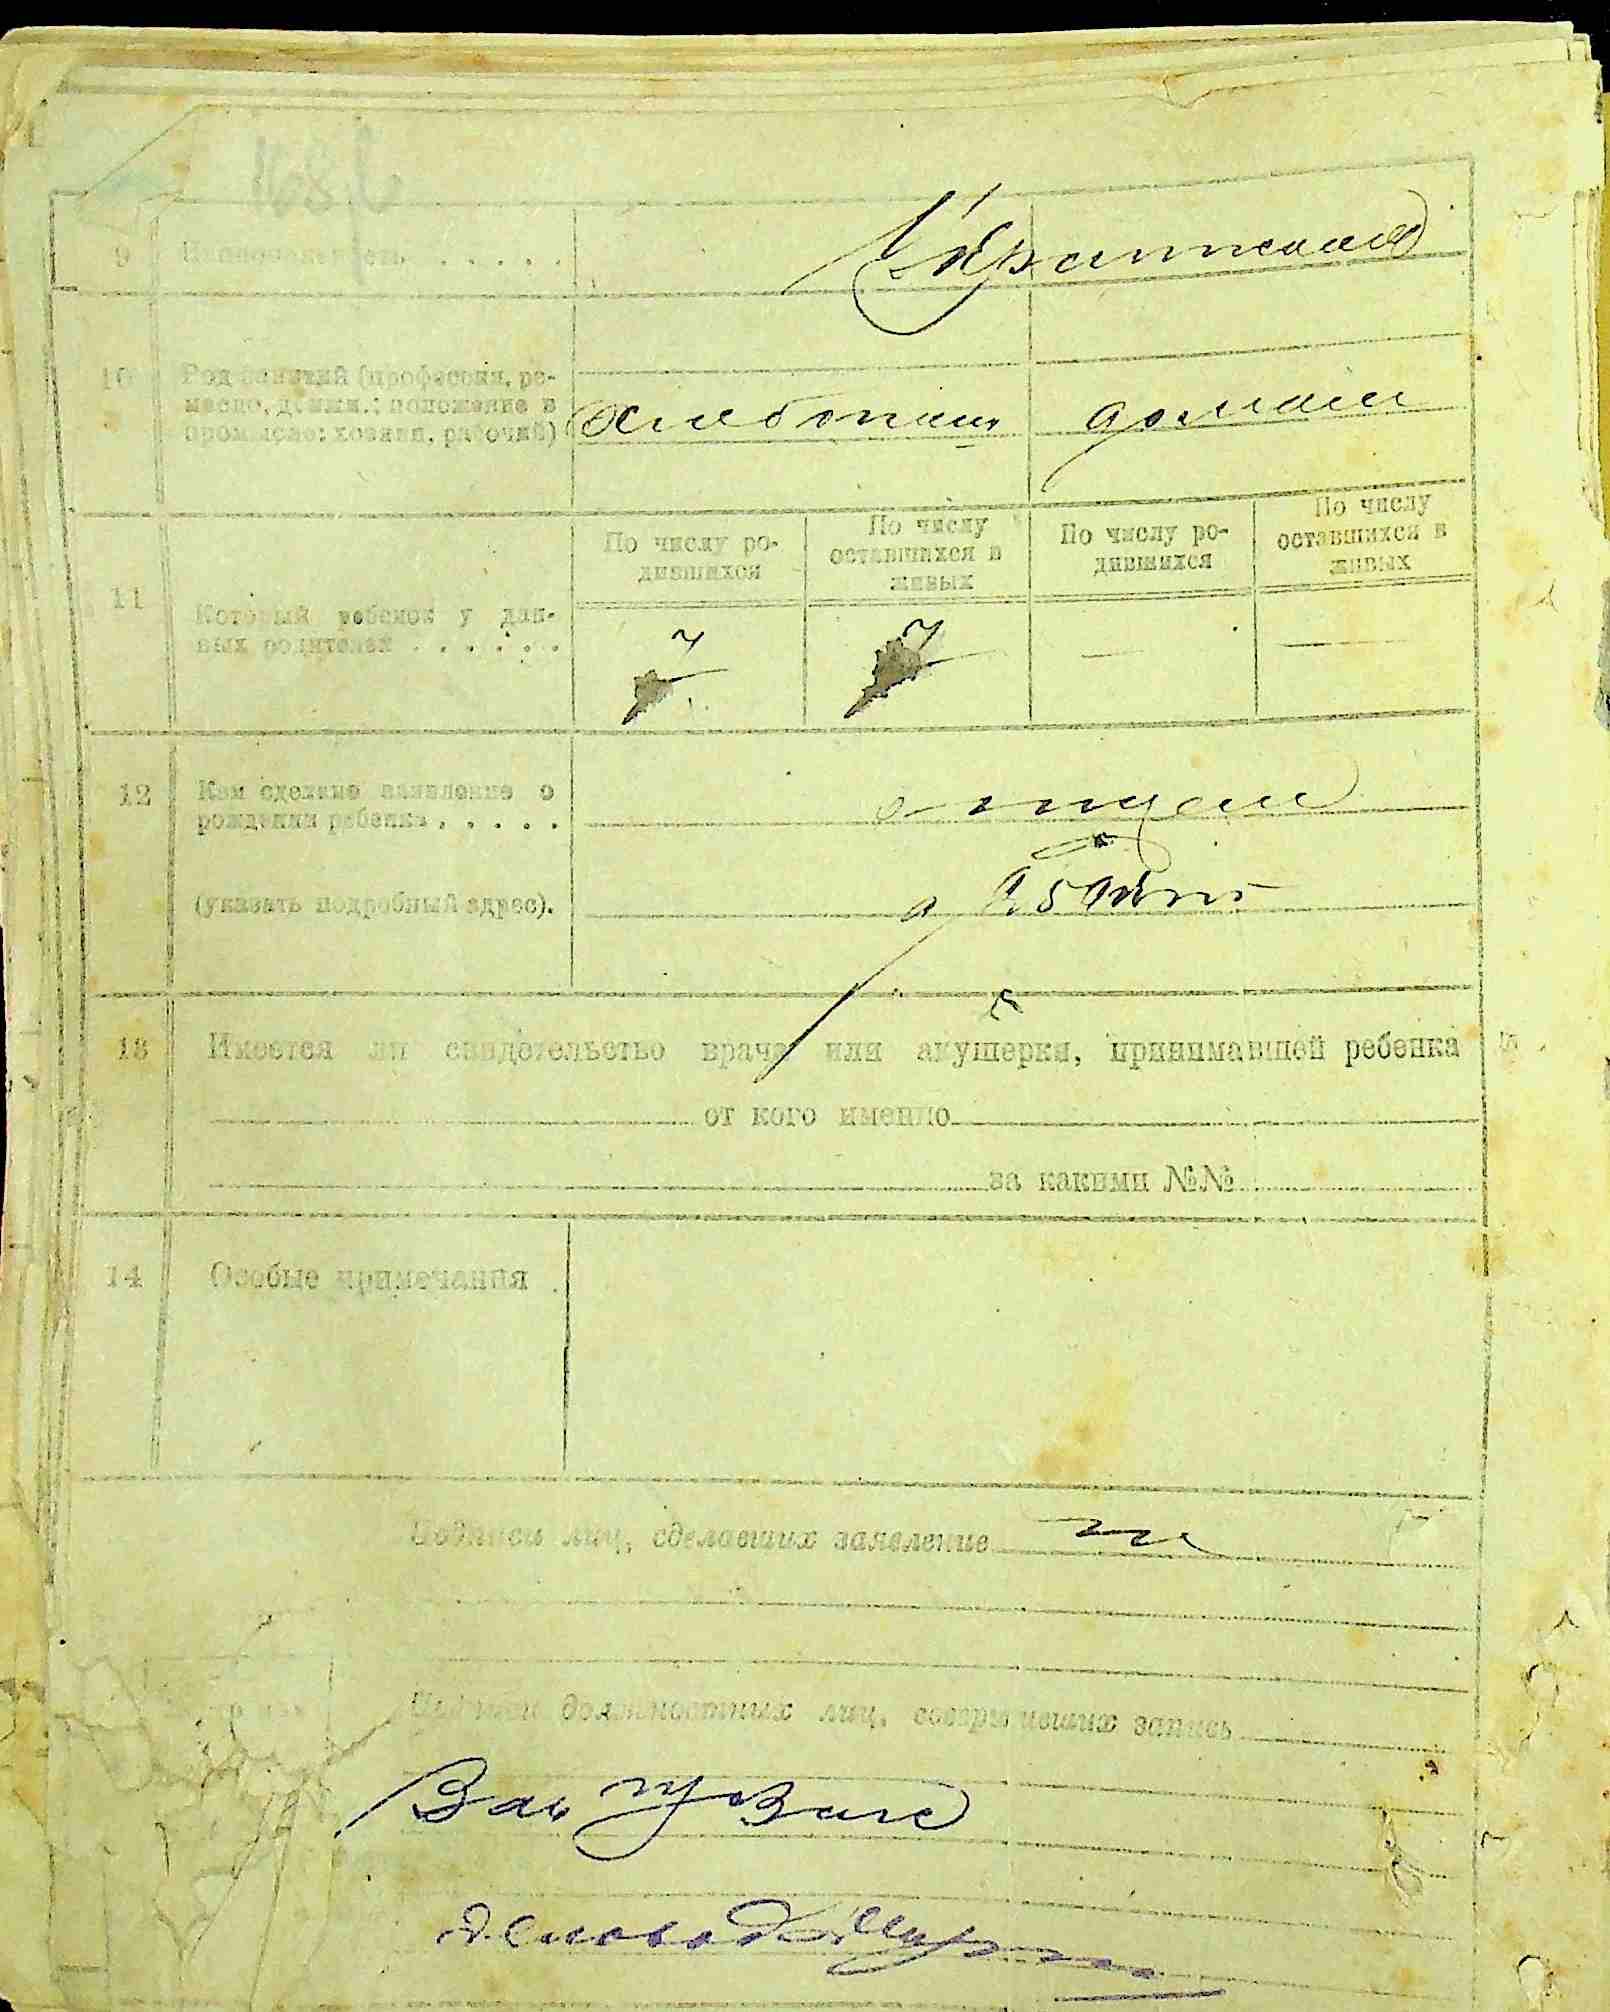 9 Национальность . . . . . .
10 Род занятий (профессия, ре-
месло, должн.: положение в
промысле: хозяин, рабочий)
Хлебопаш. домаш
11 Который ребенок у дан-
ных родителей . . . . . .
По числу ро-
дившихся
По числу
оставшихся в
живых
По числу ро-
дившихся
По числу
оставшихся в
живых
— —
12 Кем сделано заявление о
рождении ребенка . . . . .
отцем
(указать подробный адрес).
13 Имеется ли свидетельство врача или акушерки, принимавшей ребенка
от кого именно
за какими №№
14 Особые примечания .
Подписи лиц, сделавших заявление
Подписи должностных лиц, совершивших запись